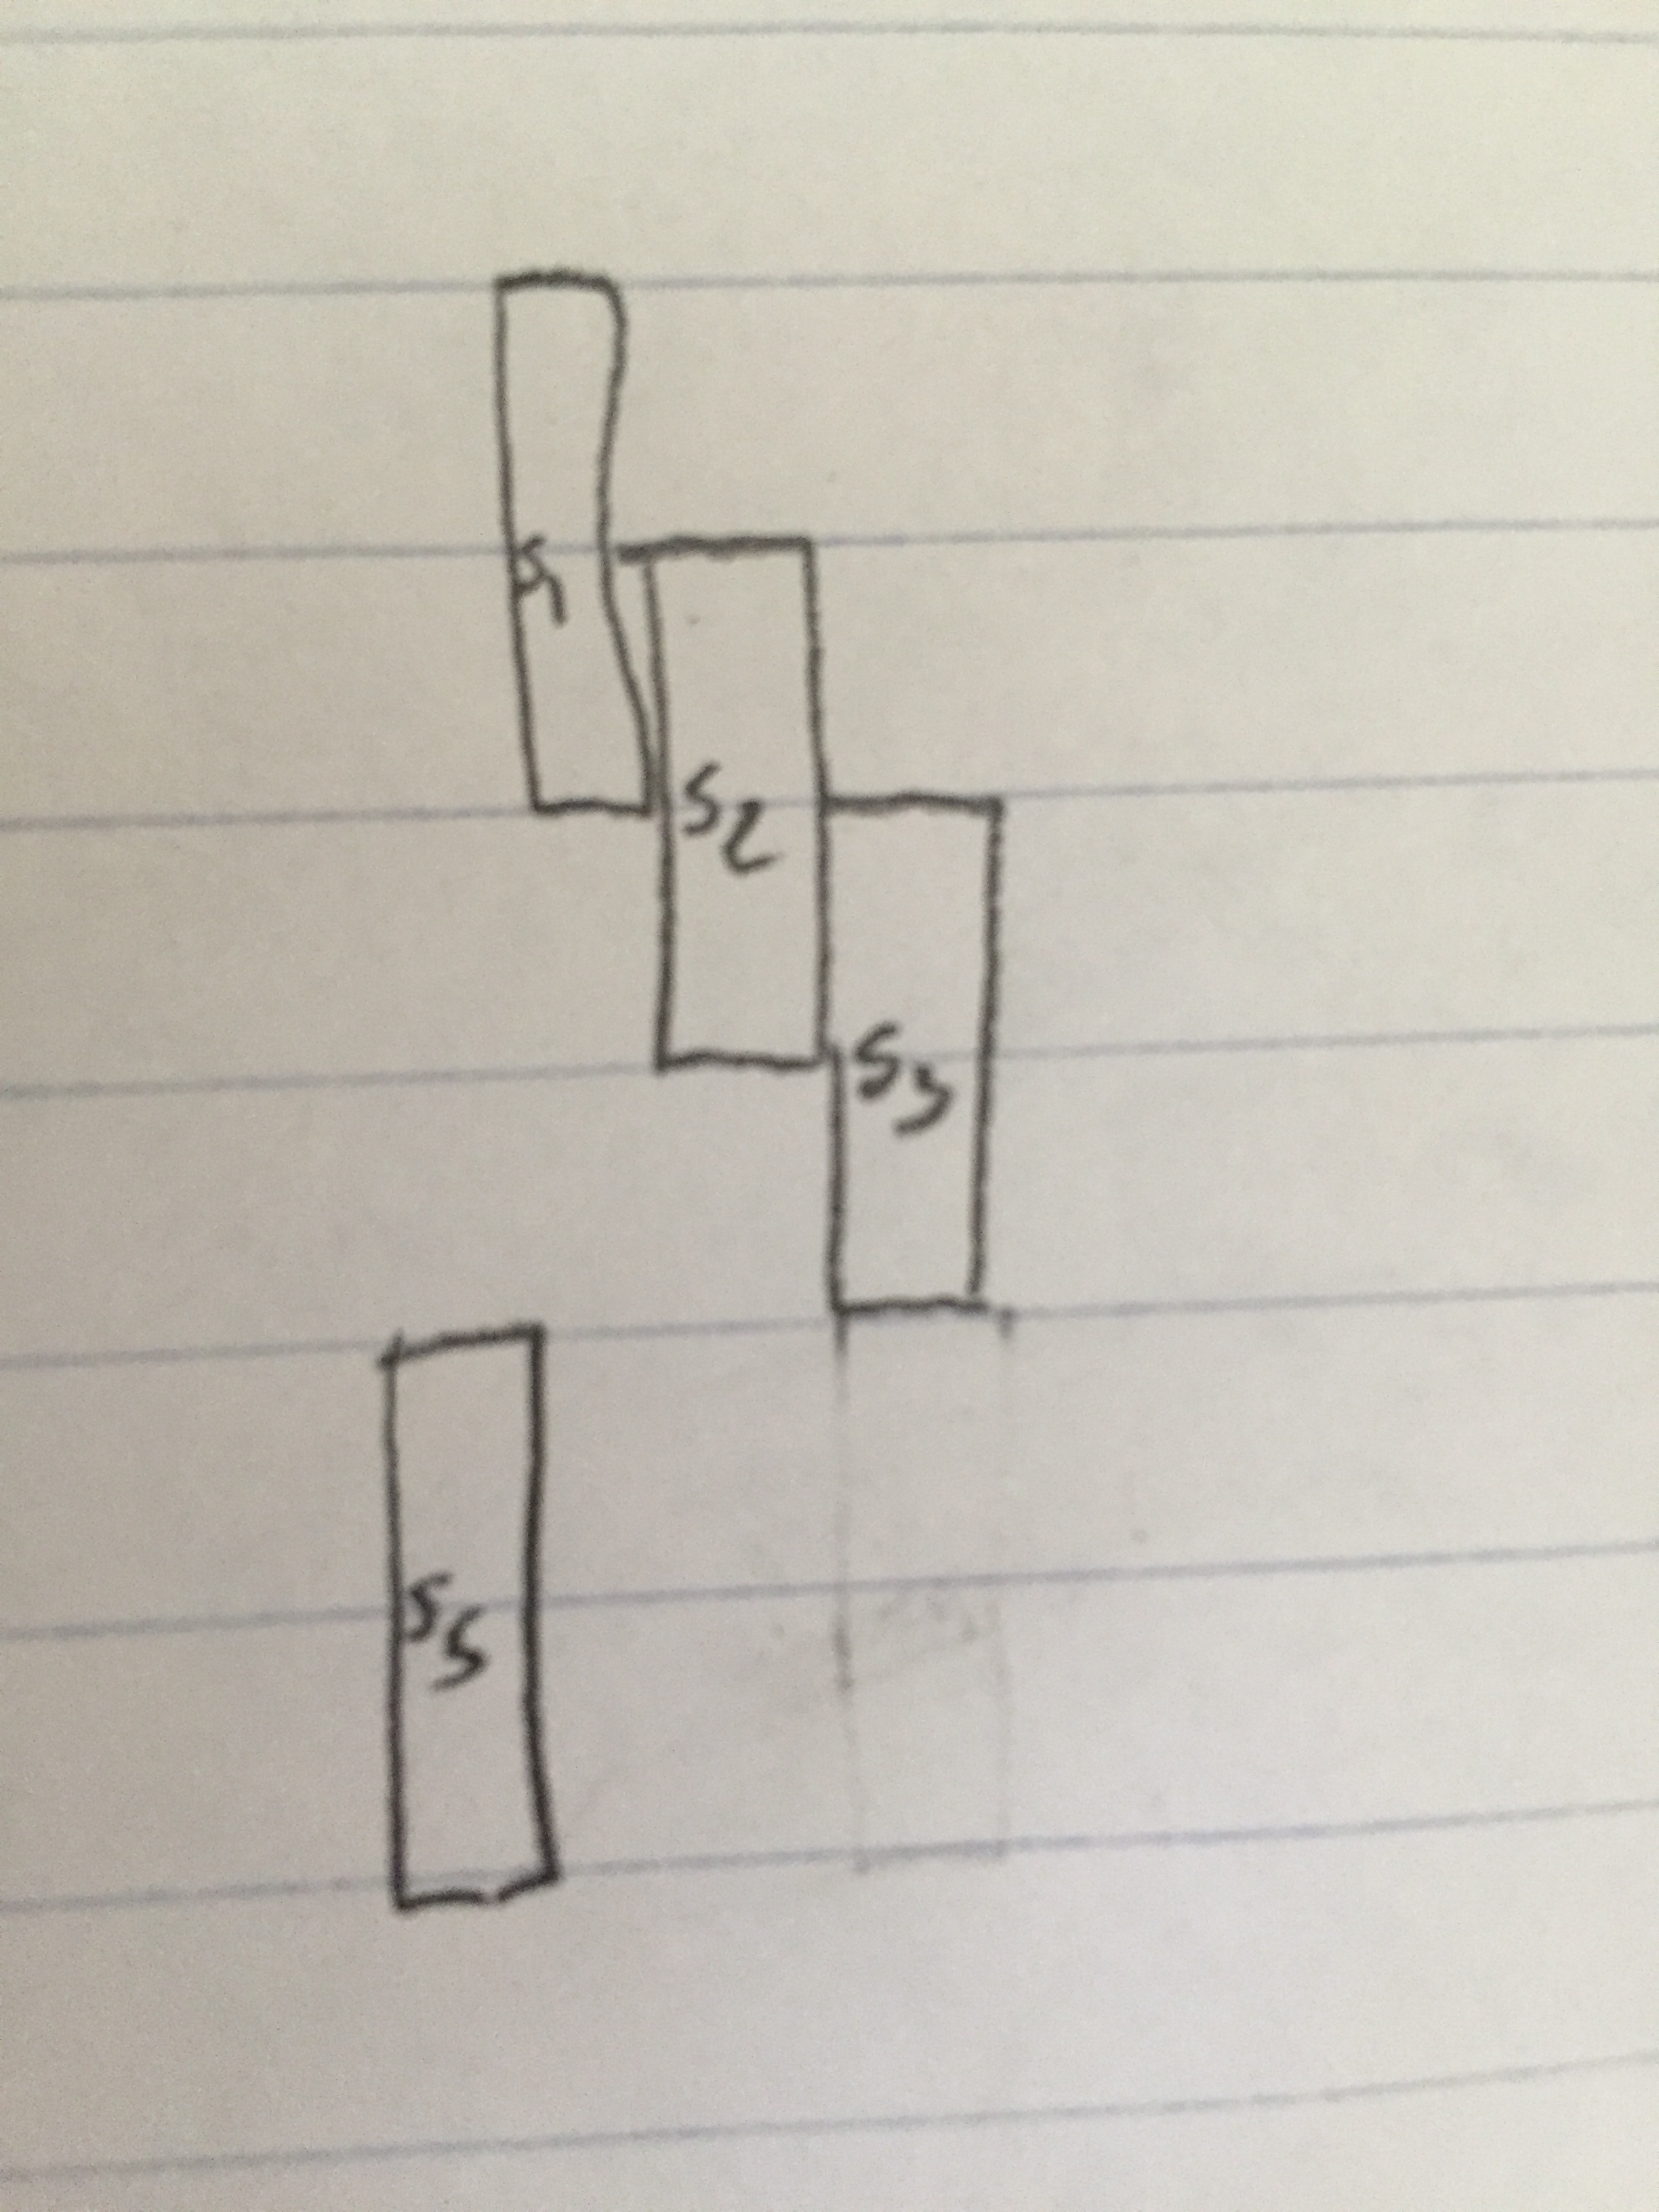 S1
S2
S3
S5